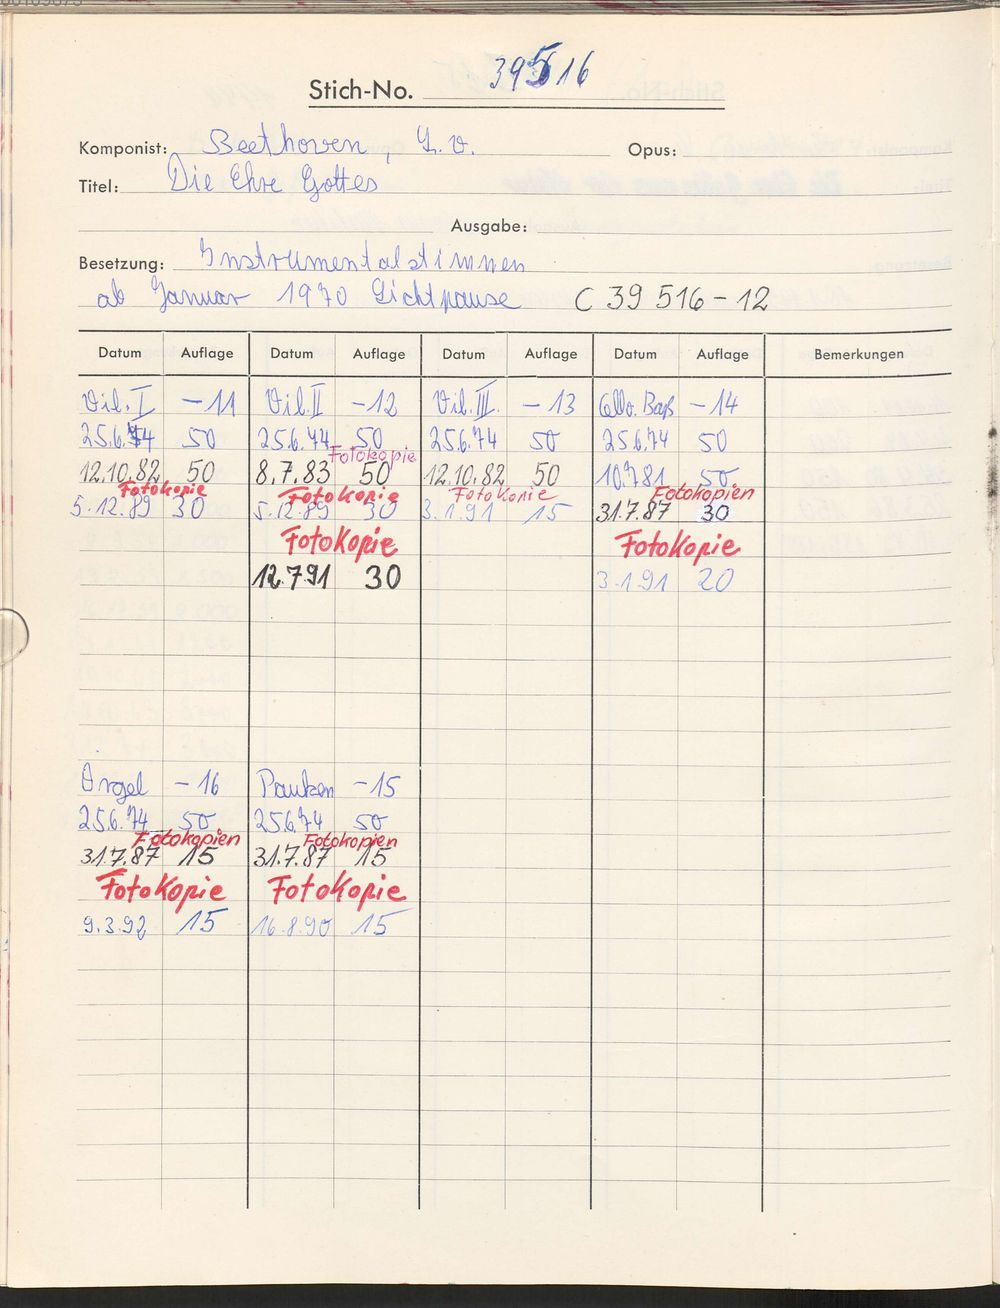 Stich-No. 39516
Komponist: Beethoven, L. v. Opus:
Titel: Die Ehre Gottes
Ausgabe:
Besetzung: Instrumentalstimmen
ab Januar 1970 Lichtpause C 39 516-12
Datum Auflage Datum Auflage Datum Auflage Datum Auflage Bemerkungen
Viol. I -11 Viol. II -12 Viol. III. -13 Cello. Baß -14
25.6.74 50 25.6.74 50 25.6.74 50 25.6.74 50
Fotokopie
12.10.82 50 8.7.83 50 12.10.82 50 10.7.81 50
Fotokopie Fotokopie Fotokopie Fotokopien
5.12.89 30 5.12.89 30 3.1.91 15 31.7.87 30
Fotokopie Fotokopie
12.7.91 30 3.1.91 20
Orgel -16 Pauken -15
25.6.74 50 25.6.74 50
Fotokopien Fotokopien
31.7.87 15 31.7.87 15
Fotokopie Fotokopie
9.3.92 15 16.8.90 15